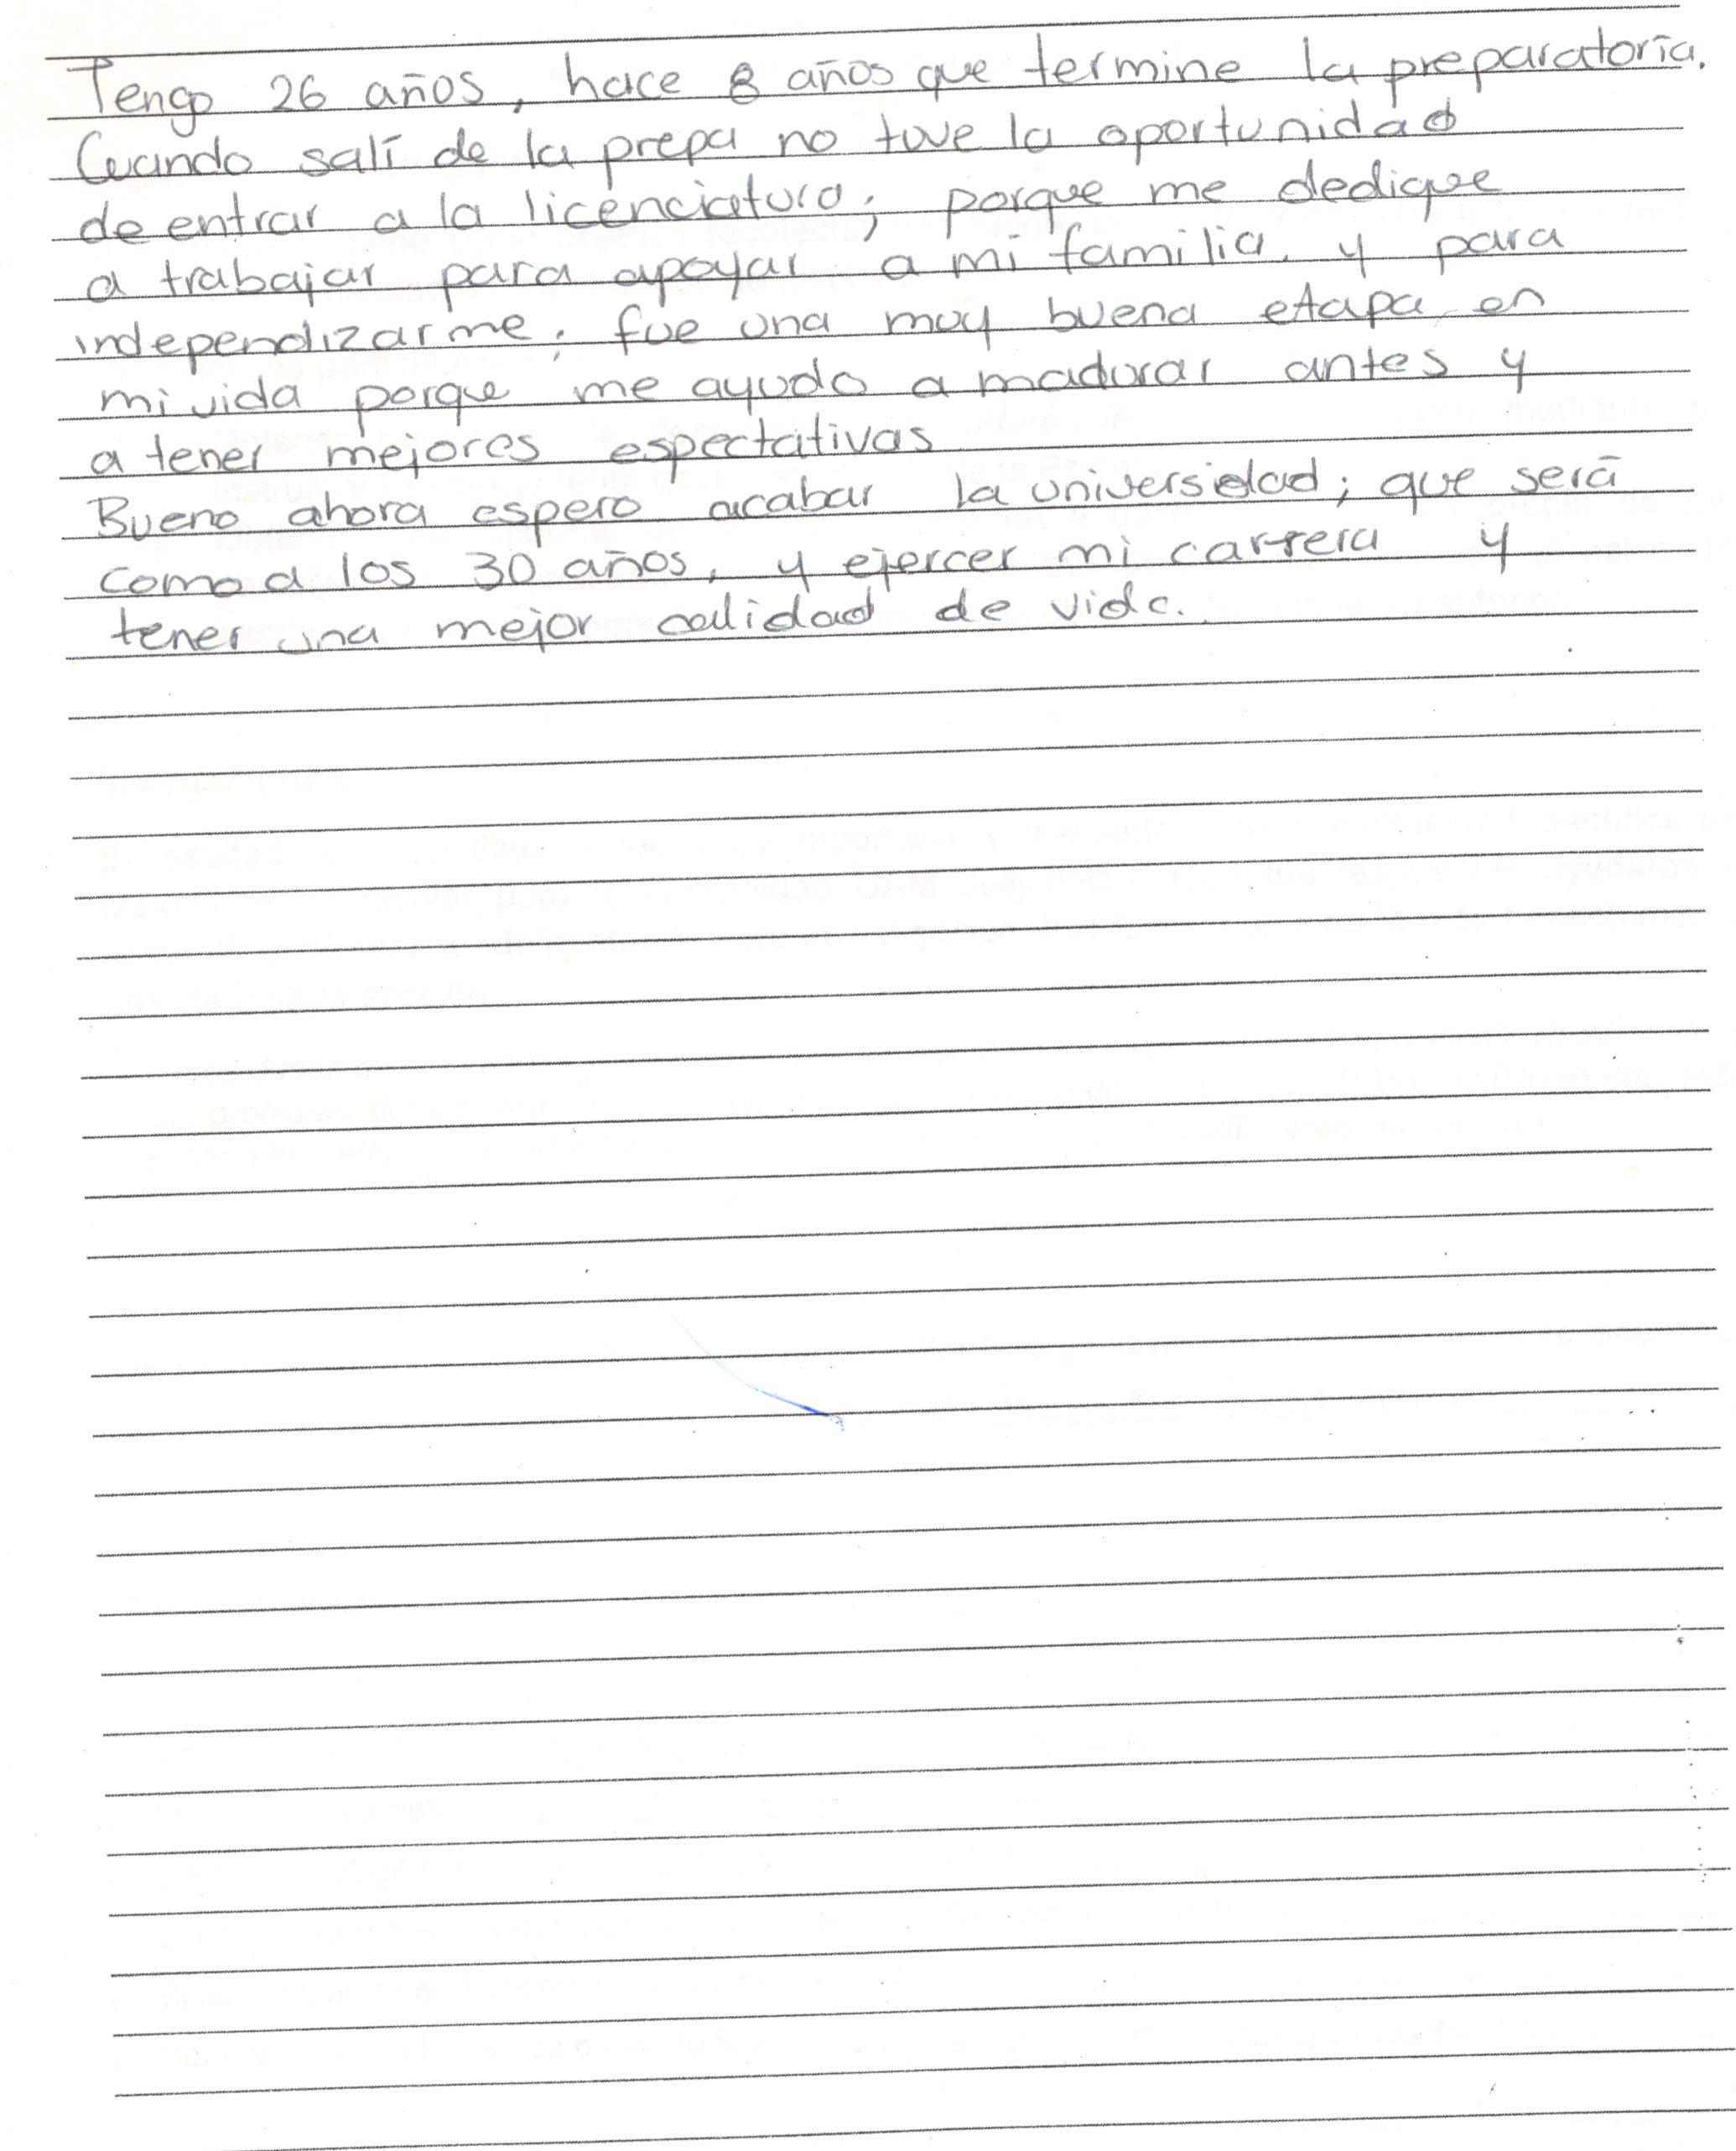 Tengo 26 años, hace 8 años que termine la preparatoria.
Cuando salí de la prepa no tuve la oportunidad
de entrar a la licenciatura; porque me dedique
a trabajar para apoyar a mi familia. y para
independizarme; fue una muy buena etapa en
mi vida porque me ayudo a madurar antes y
a tener mejores espectativas
Bueno ahora espero acabar la universidad; que será
como a los 30 años, y ejercer mi carrera y
tener una mejor calidad de vida.